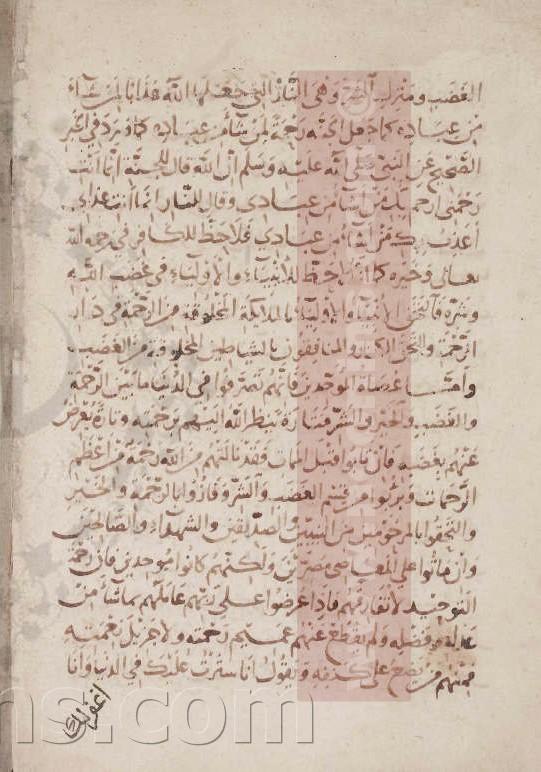 الغضب ومنزلة الشر وهي النار التي جعلها الله عذابا لمن شاء
من عباده كما جعل الجنه رحمة لمن شاء من عباده كما ورد في الخبر
الصحيح عن النبي صلى الله عليه وسلم ان الله قال للجنة انما انت
رحمتي ارحم بك من اشاء من عبادي وقال للنار انما انت عذابي
اعذب بك من اشاء من عبادي فلا حظ للكافر في رحمة الله
تعالى وخيره كما انه لا حظ للانبياء والاولياء في غضب الله
وشره فالتحق الانبياء والاولياء بالملائكة المخلوقة من الرحمة في دار
الرحمة والتحق الكفار والمنافقون بالشياطين المخلوقة من الغضب
واما عصاة الموحدين فانهم تفرقوا في الدنيا ما بين الرحمة
والغضب والخير والشر فتارة ينظر الله اليهم برحمته وتارة يعرض
عنهم بغضبه فان تابوا قبل الممات فقد نالتهم من الله رحمة من اعظم
الرحمات وبرئوا من قسم الغضب والشر وفازوا بالرحمة والخير
والتحقوا بالمرحومين من النبيين والصديقين والشهداء والصالحين
وان ماتوا على المعاصي مصرين ولكنهم كانوا موحدين فان رحمة
التوحيد لا تفارقهم فاذا عرضوا على ربهم عاملهم بما شاء من
عدله وفضله ولم يقطع عنهم عميم رحمته ولا جزيل نعمته
فمنهم من يضع على كنفه ويقول انا سترت عليك في الدنيا وانا
اغفر لك
ns.com